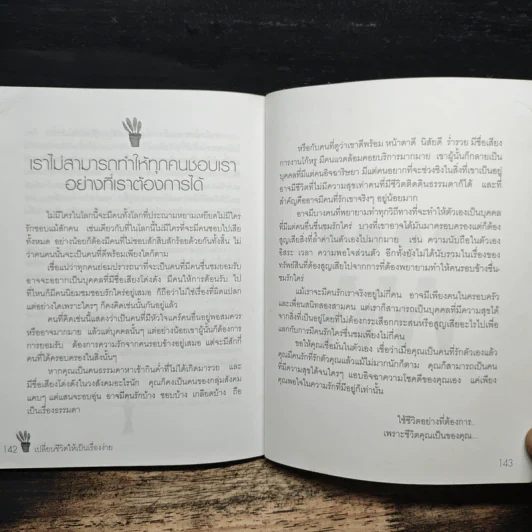 เราไม่สามารถทำให้ทุกคนชอบเรา
อย่างที่เราต้องการได้
ไม่มีใครในโลกนี้จะมีคนทั้งโลกที่ประณามหยามเหยียดไม่มีใคร
รักชอบแม้สักคน เช่นเดียวกับที่ในโลกนี้ไม่มีใครที่จะมีคนชอบไปเสีย
ทั้งหมด อย่างน้อยก็ต้องมีคนที่ไม่ชอบสักสิบสักร้อยด้วยกันทั้งสิ้น ไม่
ว่าคนคนนั้นจะเป็นคนที่ดีพร้อมเพียงใดก็ตาม
เชื่อแน่ว่าทุกคนย่อมปรารถนาที่จะเป็นคนที่มีคนชื่นชมยอมรับ
อาจจะอยากเป็นบุคคลที่มีชื่อเสียงโด่งดัง มีคนให้การต้อนรับ ไป
ที่ไหนก็มีคนนิยมชมชอบรักใคร่อยู่เสมอ ก็ถือว่าไม่ใช่เรื่องที่ผิดแปลก
แต่อย่างใดเพราะใครๆ ก็คงคิดเช่นนั้นกันอยู่แล้ว
คนที่คิดเช่นนี้แสดงว่าเป็นคนที่มีหัวใจแคร์คนอื่นอยู่พอสมควร
หรืออาจมากมาย แล้วแต่บุคคลนั้นๆ แต่อย่างน้อยเขาผู้นั้นก็ต้องการ
การยอมรับ ต้องการความรักจากคนรอบข้างอยู่เสมอ แต่จะมีสักกี่
คนที่ได้ครบองในสิ่งนั้นๆ
หากคุณเป็นคนธรรมดาหาเช้ากินค่ำที่ไม่ได้เกิดมารวย และ
มีชื่อเสียงโด่งดังในวงสังคมอะไรนัก คุณก็คงเป็นคนของกลุ่มสังคม
แคบๆ แต่แสนจะอบอุ่น อาจมีคนรักบ้าง ชอบบ้าง เกลียดบ้าง ถือ
เป็นเรื่องธรรมดา
142 เปลี่ยนชีวิตให้เป็นเรื่องง่าย
หรือกับคนที่ดูว่าเขาดีพร้อม หน้าตาดี นิสัยดี ร่ำรวย มีชื่อเสียง
การงานโก้หรู มีคนแวดล้อมคอยบริการมากมาย เขาผู้นั้นก็กลายเป็น
บุคคลที่มีแต่คนอิจฉาริษยา มีแต่คนอยากที่จะช่วงชิงในสิ่งที่เขาเป็นอยู่
อาจมีชีวิตที่ไม่มีความสุขเท่าคนที่มีชีวิตติดดินธรรมดาก็ได้ และที่
สำคัญอาจมีคนที่รักเขาจริงๆ อยู่น้อยมาก
อาจมีบางคนที่พยายามทำทุกวิถีทางที่จะทำให้ตัวเองเป็นบุคคล
ที่มีแต่คนอื่นชื่นชมรักใคร่ บางทีเขาอาจได้มันมาครอบครองแต่ก็ต้อง
สูญเสียสิ่งที่ล้ำค่าในตัวเองไปมากมาย เช่น ความนับถือในตัวเอง
อิสระ เวลา ความพอใจส่วนตัว อีกทั้งยังไม่ได้นับรวมในเรื่องของ
ทรัพย์สินที่ต้องสูญเสียไปจากการที่ต้องพยายามทำให้คนรอบข้างชื่น-
ชมรักใคร่
แม้เราจะมีคนรักเราจริงอยู่ไม่กี่คน อาจมีเพียงคนในครอบครัว
และเพื่อนสนิทสองสามคน แต่เราก็สามารถเป็นบุคคลที่มีความสุขได้
จากสิ่งที่เป็นอยู่โดยที่ไม่ต้องกระเสือกกระสนหรือสูญเสียอะไรไปเพื่อ
แลกกับการมีคนรักใคร่ชื่นชมเพียงไม่กี่คน
ขอให้คุณเชื่อมั่นในตัวเอง เชื่อว่าเมื่อคุณเป็นคนที่รักตัวคุณเองแล้ว
คุณมีคนที่รักตัวคุณแล้วแม้ไม่มากนักก็ตาม คุณก็สามารถเป็นคน
ที่มีความสุขได้จนใครๆ แอบอิจฉาความโชคดีของคุณเอง แค่เพียง
คุณพอใจในความรักที่มีอยู่ก็เท่านั้น
ใช้ชีวิตอย่างที่ต้องการ
เพราะชีวิตคุณเป็นของคุณ
143